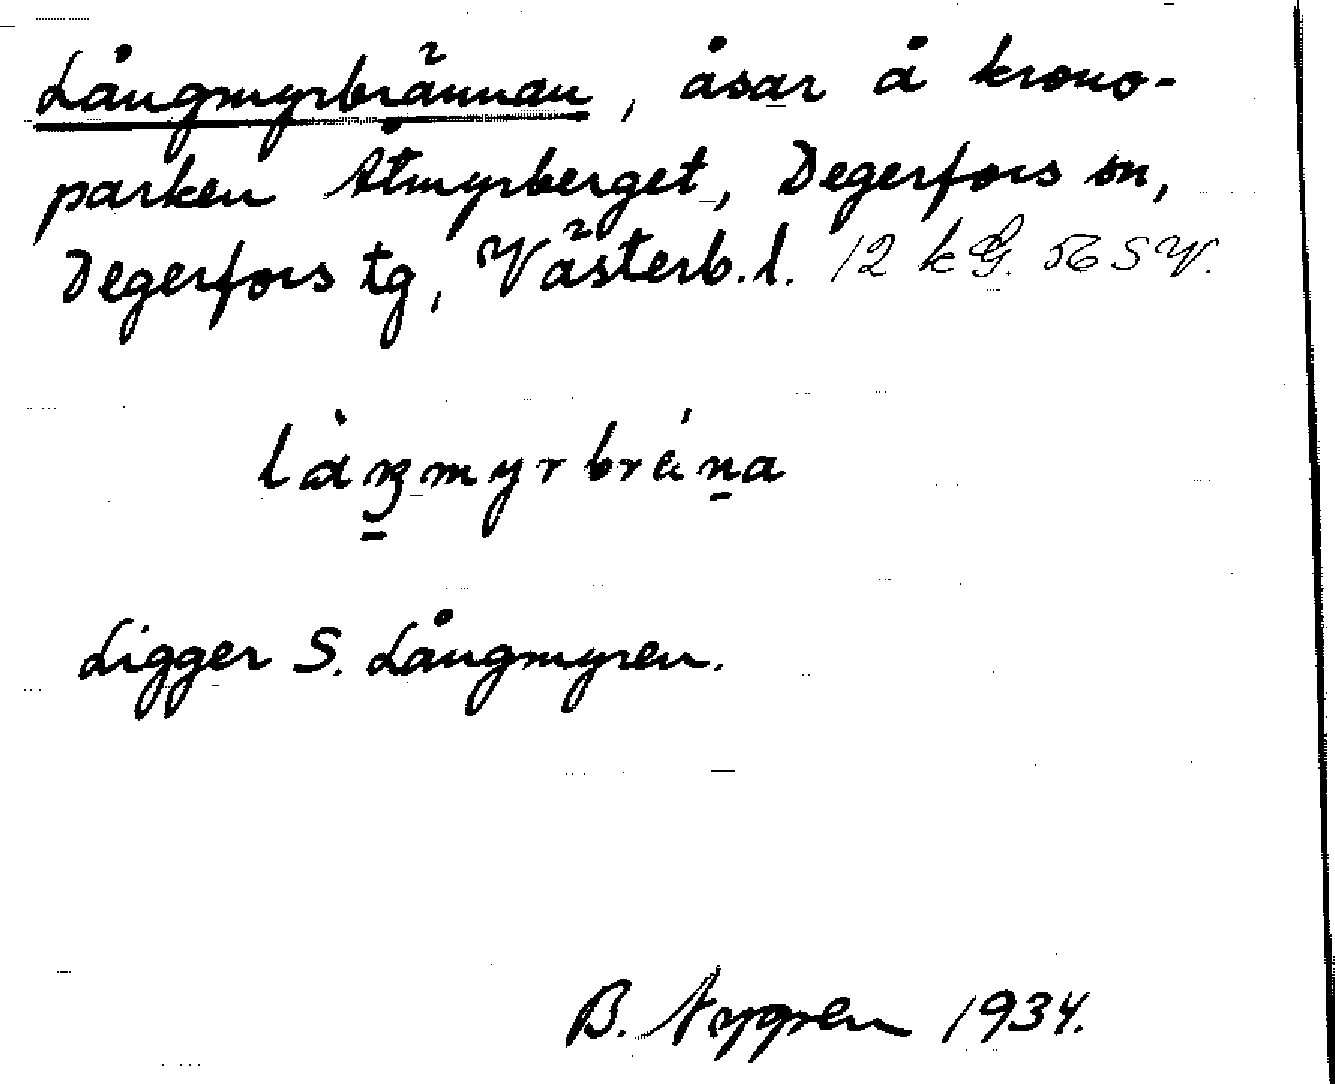 Långmyrbrännan, åsar å krono-
parken Åtmyrberget, Degerfors sn,
Degerfors tg, Västerb. l. 12 k G. 56 SV.
làŋmyrbrána
Ligger S. Långmyren.
B. Nygren 1934.